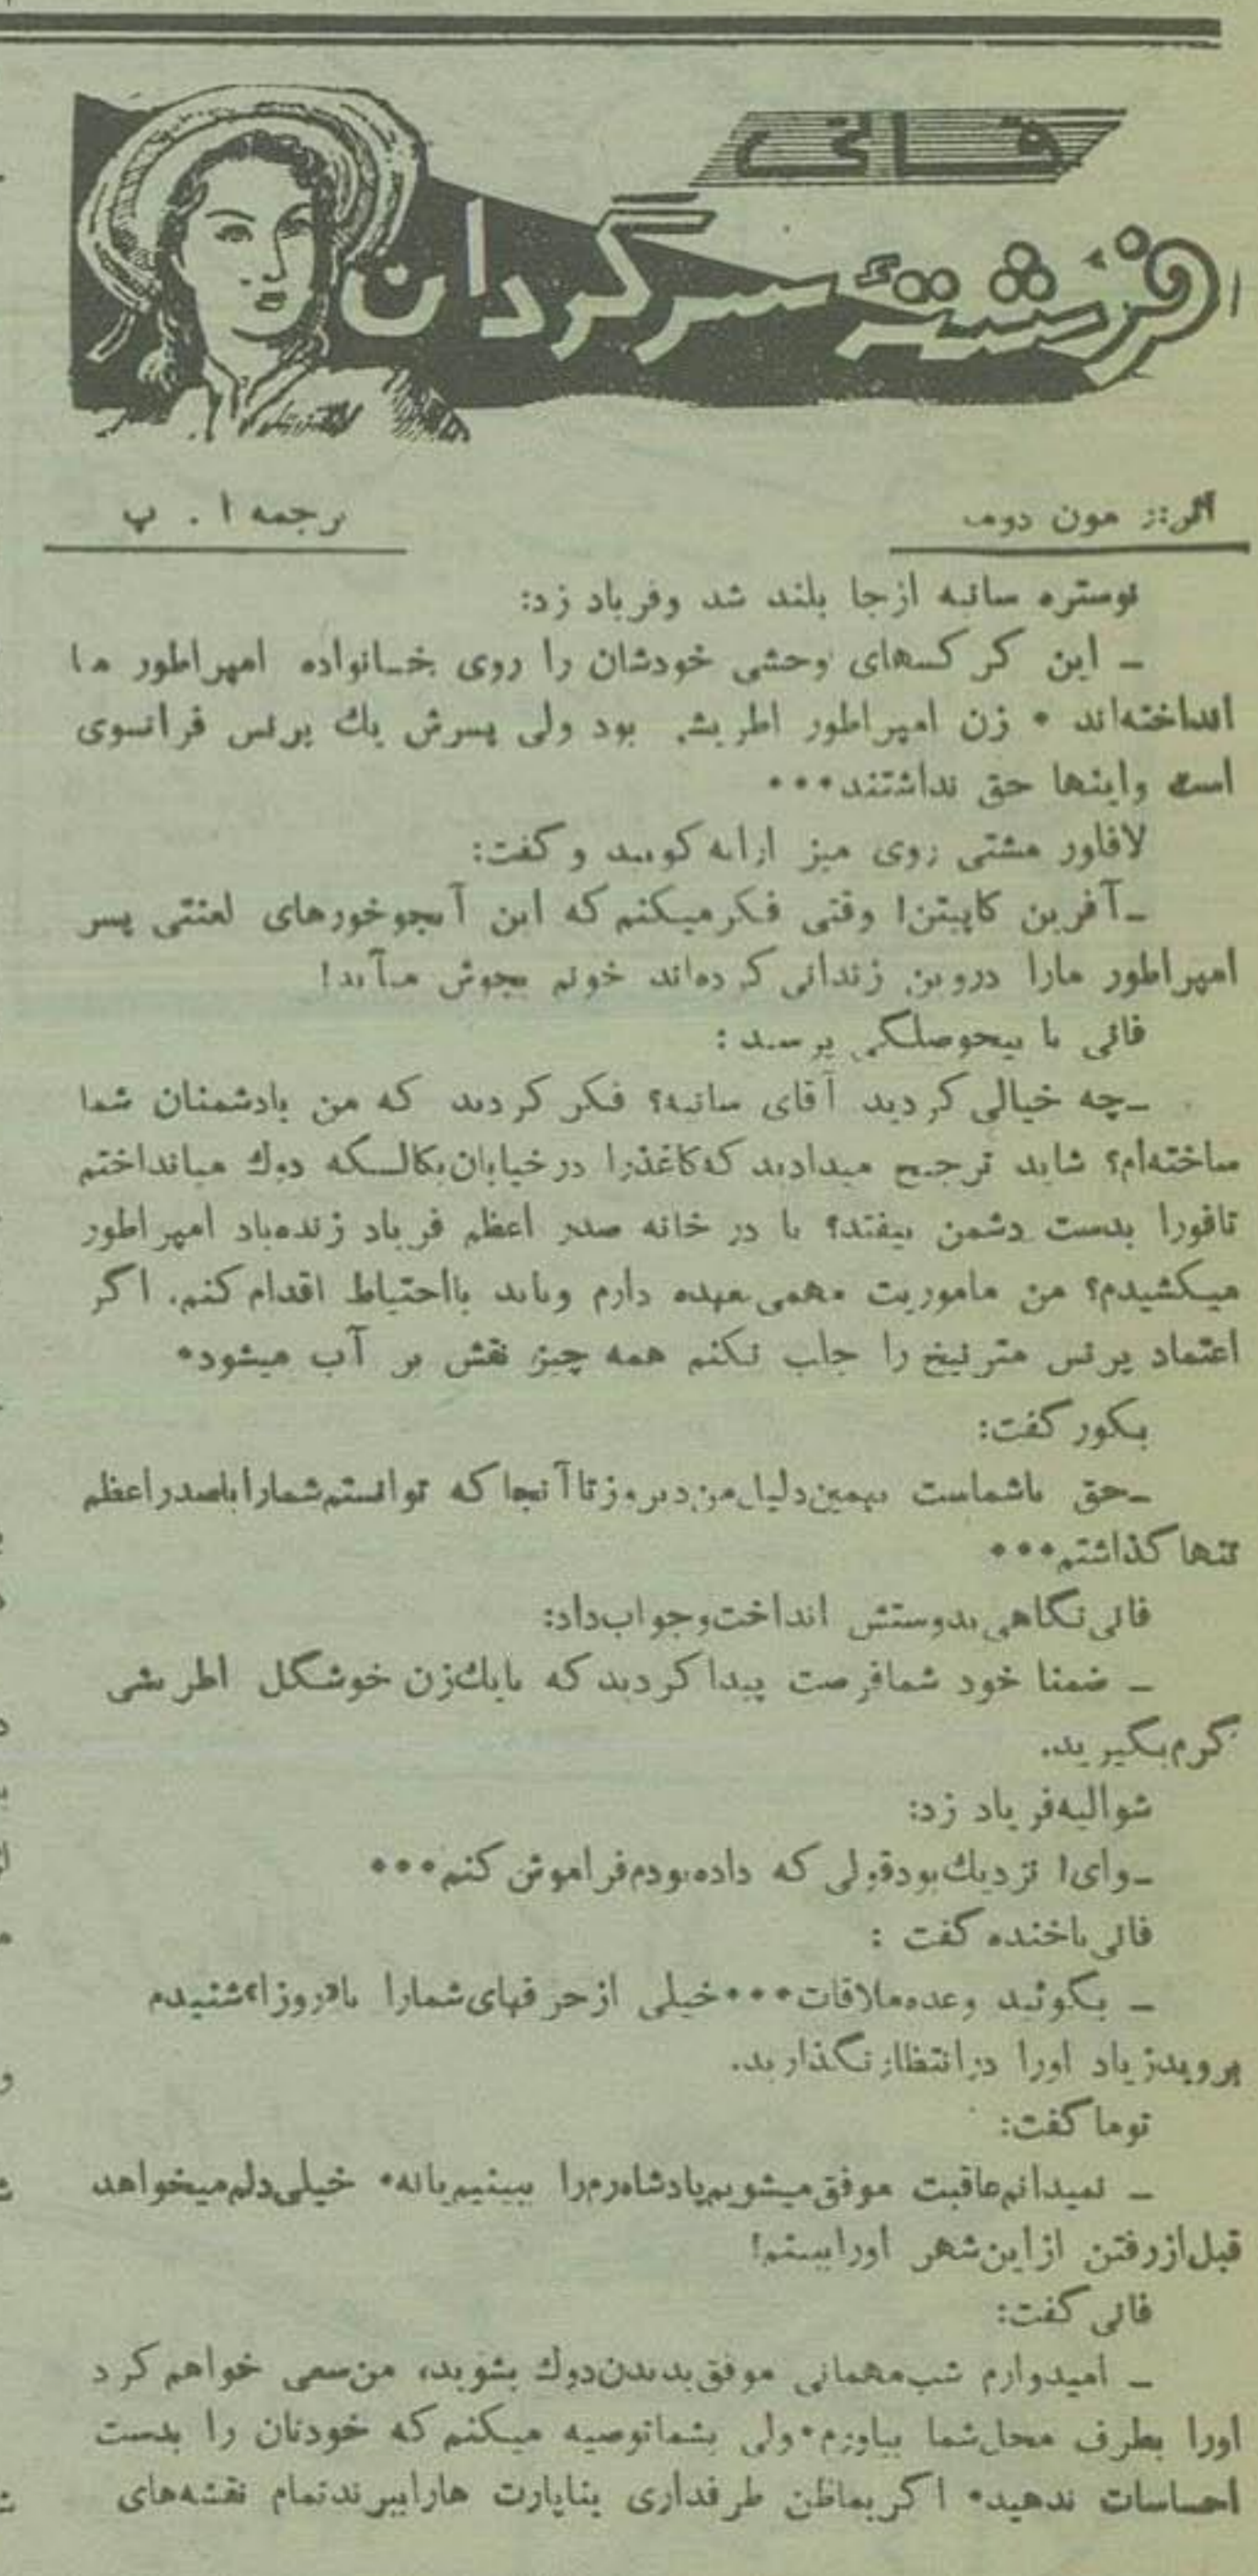 فانی
فرشتهٔ سرگردان
اثر: مون دوم
ترجمه ا . پ
نوستره سانبه ازجا بلند شد وفریاد زد:
ـ این کرکسهای وحشی خودشان را روی خانواده امپراطور ما
انداخته‌اند • زن امپراطور اطریشی بود ولی پسرش یك پرنس فرانسوی
است واینها حق نداشتند•••
لافاور مشتی روی میز ارابه کوبید و گفت:
ـ آفرین کاپیتن! وقتی فکرمیکنم که این آبجوخورهای لعنتی پسر
امپراطور مارا دروین زندانی کرده‌اند خونم بجوش میآید!
فانی با بیحوصلگی پرسید :
ـ چه خیالی کردید آقای سانبه؟ فکر کردید که من بادشمنان شما
ساخته‌ام؟ شاید ترجیح میدادید که‌کاغذرا درخیابان‌بکالسکه دوك میانداختم
تافورا بدست دشمن بیفتد؟ یا در خانه صدر اعظم فریاد زنده‌باد امپراطور
میکشیدم؟ من ماموریت مهمی بعهده دارم وباید بااحتیاط اقدام کنم. اگر
اعتماد پرنس مترنیخ را جلب نکنم همه چیز نقش بر آب میشود•
بکور گفت:
ـ حق باشماست بهمین‌دلیل‌من‌دیروزتاآنجا که توانستم‌شماراباصدراعظم
تنها گذاشتم•••
فانی نگاهی‌بدوستش انداخت‌وجواب‌داد:
ـ ضمنا خود شمافرصت پیدا کردید که بایك‌زن خوشگل اطریشی
گرم‌بگیرید.
شوالیه‌فریاد زد:
ـ وای! نزدیك‌بودقولی که داده‌بودم‌فراموش کنم•••
فانی‌باخنده گفت :
ـ بگوئید وعده‌ملاقات•••خیلی ازحرفهای‌شمارا با«روزا»شنیدم
برویدزیاد اورا درانتظارنگذارید.
توما گفت:
ـ نمیدانم‌عاقبت موفق‌میشویم‌پادشاه‌رم‌را ببینیم‌یانه• خیلی‌دلم‌میخواهد
قبل‌ازرفتن ازاین‌شهر اوراببینم!
فانی گفت:
ـ امیدوارم شب‌مهمانی موفق‌بدیدن‌دوك بشوید، من‌سعی خواهم کرد
اورا بطرف محل‌شما بیاورم•ولی بشماتوصیه میکنم که خودتان را بدست
احساسات ندهید• اگربماظن طرفداری بناپارت هاراببرندتمام نقشه‌های